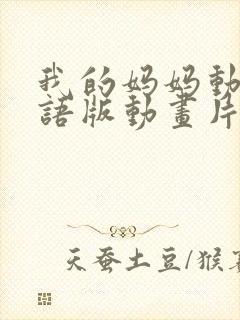 我的妈妈動
語版動畫片
天蚕土豆/猴